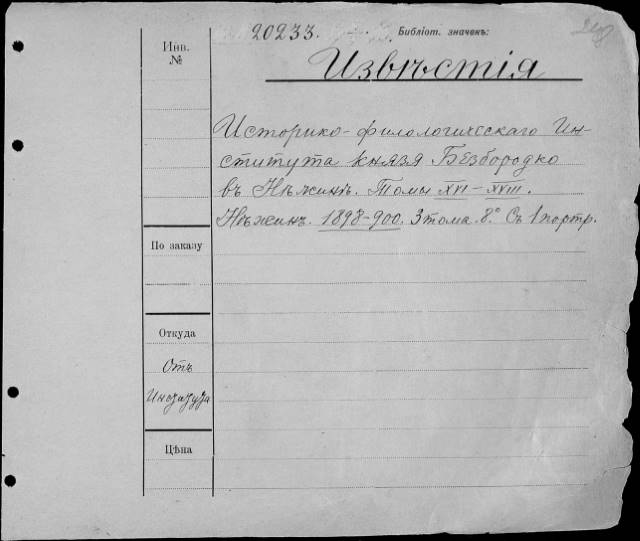 20233. Библіот. значекъ:
Инв.
№
Извѣстія
Историко-филологическаго Ин-
ститута князя Безбородко
въ Нѣжинѣ. Томы XVI–XVIII.
Нѣжинъ. 1898–900. 3 тома. 8º. Съ 1 портр.
По заказу
Откуда
Отъ
Цѣна